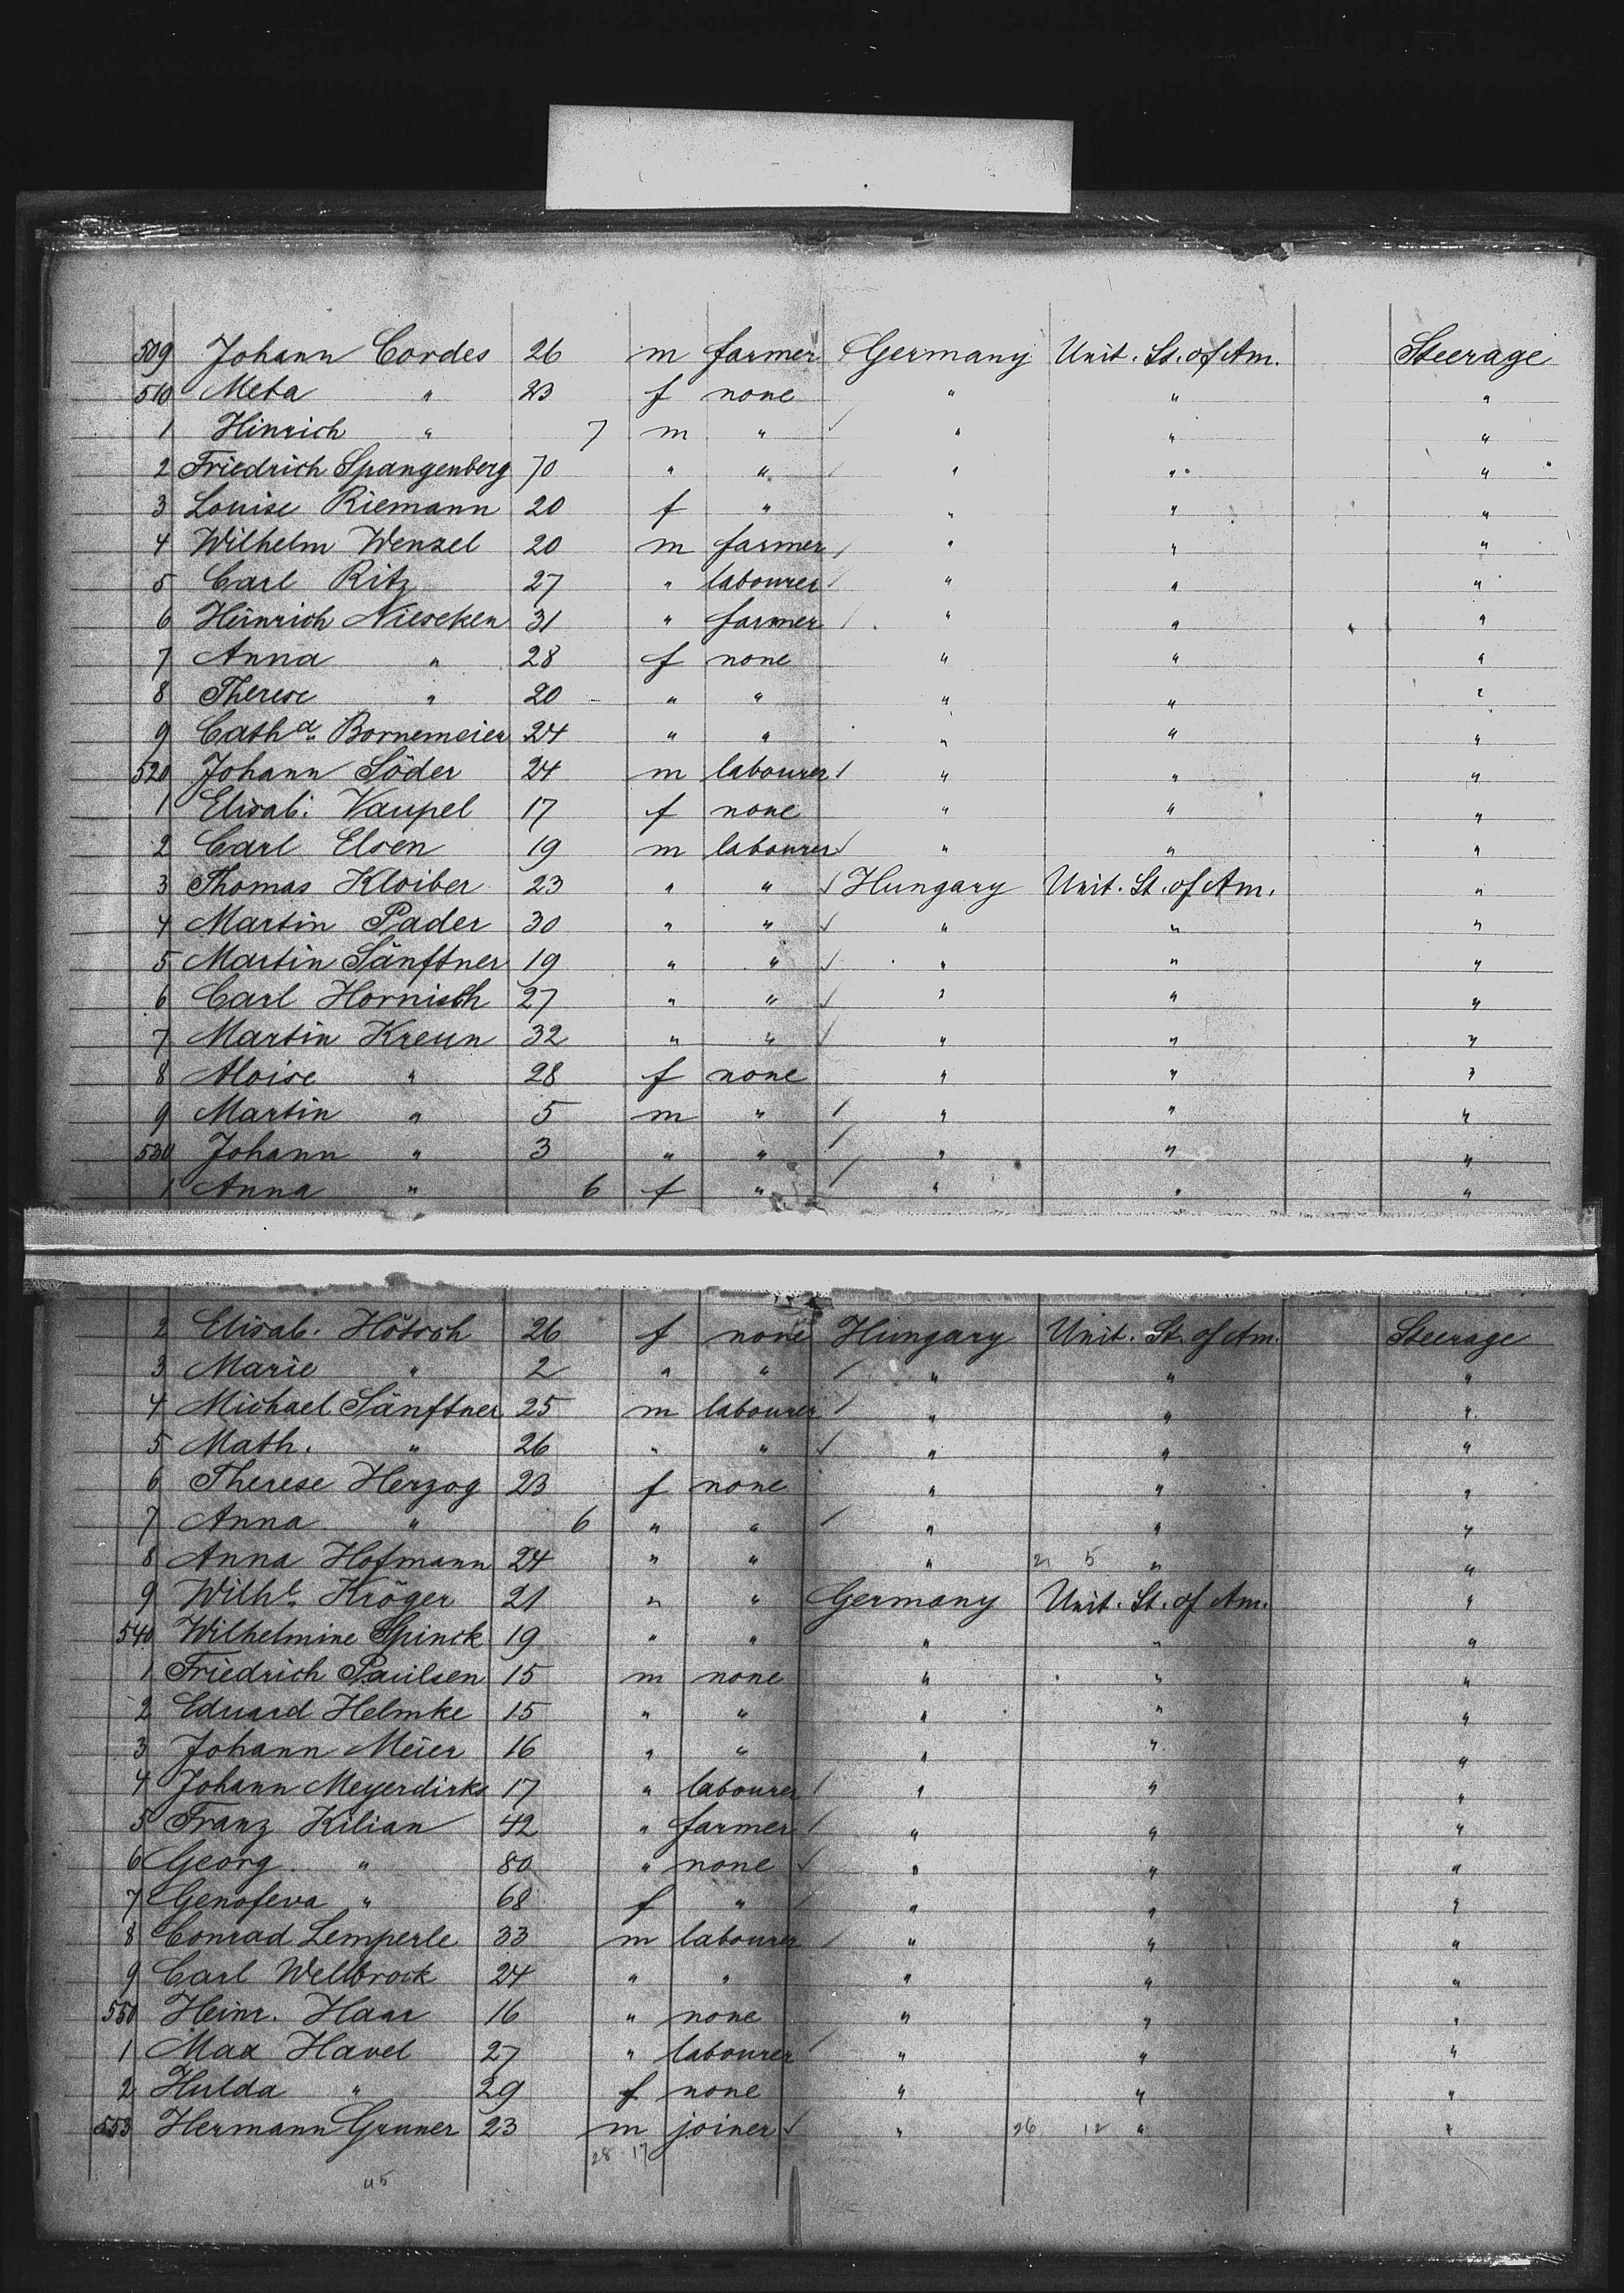 509 Johann Cordes 26 m farmer Germany Unit. St. of Am. Steerage
510 Meta " 23 f none " " "
1 Hinrich " 7 m " " " "
2 Friedrich Spangenberg 70 " " " " "
3 Louise Riemann 20 f " " " "
4 Wilhelm Wenzel 20 m farmer " " "
5 Carl Ritz 27 " labourer " " "
6 Heinrich Niescken 31 " farmer " " "
7 Anna " 28 f none " " "
8 Therese " 20 " " " " "
9 Cath.a Bornemeier 24 " " " " "
520 Johann Söder 24 m labourer " " "
1 Elisab. Vaupel 17 f none " " "
2 Carl Elsen 19 m labourer " " "
3 Thomas Kloiber 23 " " Hungary Unit. St. of Am. "
4 Martin Pader 30 " " " " "
5 Martin Sänftner 19 " " " " "
6 Carl Hornisch 27 " " " " "
7 Martin Kreun 32 " " " " "
8 Aloise " 28 f none " " "
9 Martin " 5 m " " " "
530 Johann " 3 " " " " "
1 Anna " 6 f " " " "
2 Elisab. Hötsch 26 f none Hungary Unit. St. of Am. Steerage
3 Marie " 2 " " " " "
4 Michael Sänftner 25 m labourer " " "
5 Math. " 26 " " " " "
6 Therese Herzog 23 f none " " "
7 Anna " 6 " " " " "
8 Anna Hofmann 24 " " " 21 5 " "
9 Wilh.e Kröger 21 " " Germany Unit. St. of Am. "
540 Wilhelmine Spinck 19 " " " " "
1 Friedrich Paulsen 15 m none " " "
2 Eduard Helmke 15 " " " " "
3 Johann Meier 16 " " " " "
4 Johann Meyerdirks 17 " labourer " " "
5 Franz Kilian 42 " farmer " " "
6 Georg " 80 " none " " "
7 Genofeva " 68 f " " " "
8 Conrad Lemperle 33 m labourer " " "
9 Carl Wellbrock 24 " " " " "
550 Heinr. Haar 16 " none " " "
1 Max Havel 27 " labourer " " "
2 Hulda " 29 f none " " "
553 Hermann Gruner 23 m joiner " 26 12 " "
28 17
45